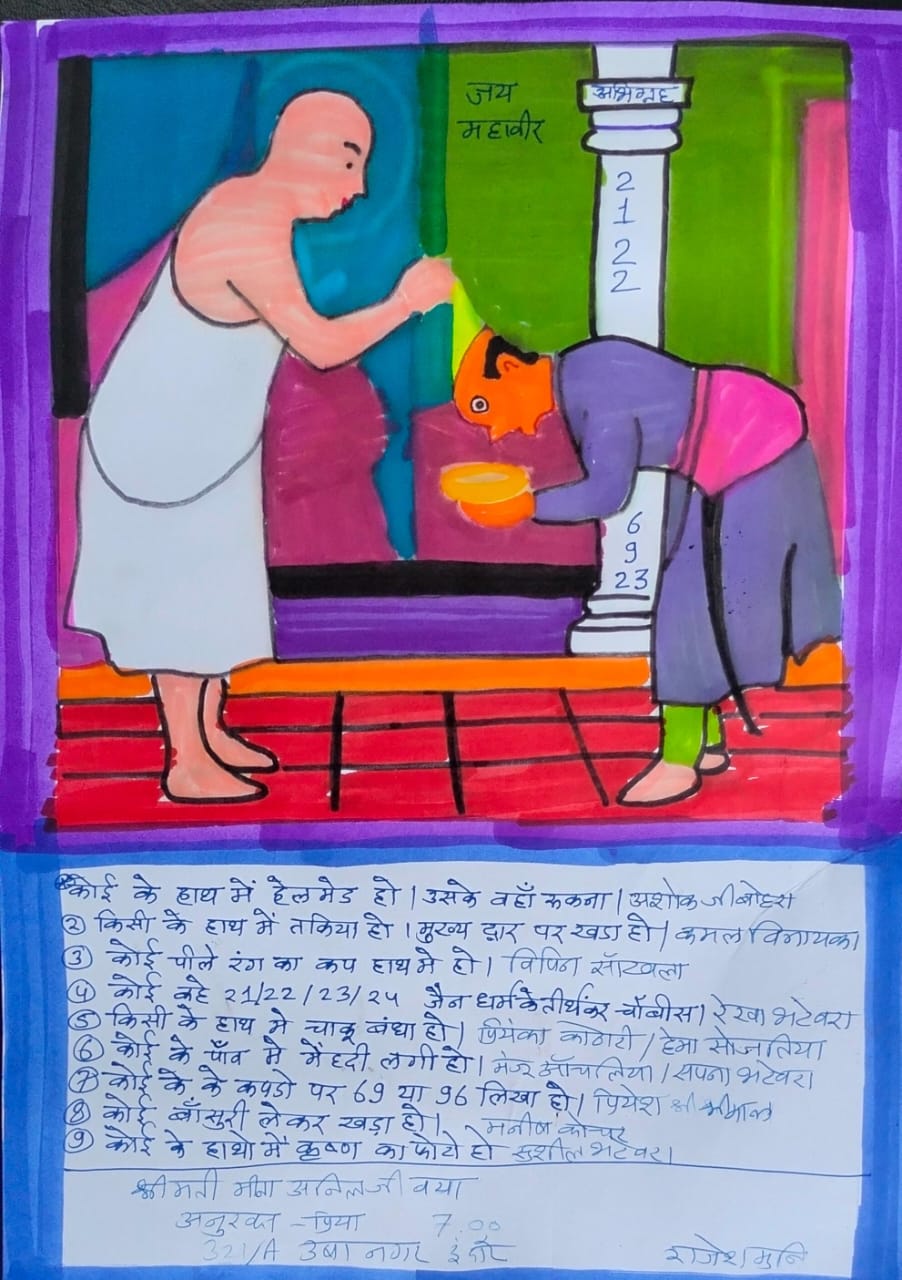 जय
महावीर
अभिग्रह
2
1
2
2
6
9
23
कोई के हाथ में हेलमेड हो। उसके वहाँ रुकना। अशोक जी बोहरा
② किसी के हाथ में तकिया हो। मुख्य द्वार पर खडा हो। कमल विनायका
③ कोई पीले रंग का कप हाथ मे हो। विपिन साँखला
④ कोई कहे 21/22/23/24 जैन धर्म के तीर्थंकर चौबीस। रेखा भटेवरा
⑤ किसी के हाथ मे चाकू बंधा हो। प्रियंका कोठारी / हेमा सोजतिया
⑥ कोई के पाँव मे मेंहदी लगी हो। मंजू आँचलिया / सपना भटेवरा
⑦ कोई के के कपडो पर 69 या 96 लिखा हो। प्रियेश श्री श्रीमाल
⑧ कोई बाँसुरी लेकर खड़ा हो। मनीष कोचर
⑨ कोई के हाथो में कृष्ण का फोटो हो सुशील भटेवरा
श्रीमती मीना अनिल जी वया
अनुरक्त - प्रिया 7.00
321/A उषा नगर इंदौर
राजेश मुनि